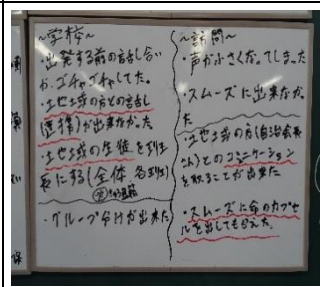 ~学校~
・出発する前の話し合い
が、ゴチャゴチャしてた。
・地域の方との話し
(準備)が出来なかった
・地域の生徒を班
長にする(全体、各班)
・グループ分けが出来た
~訪問~
・声が小さくなってしまった
・スムーズに出来なかっ
た
・地域の方(自治会長
さん)とのコミュニケーション
を取ることが出来た
・スムーズに命のカプセ
ルを出してもらえた。